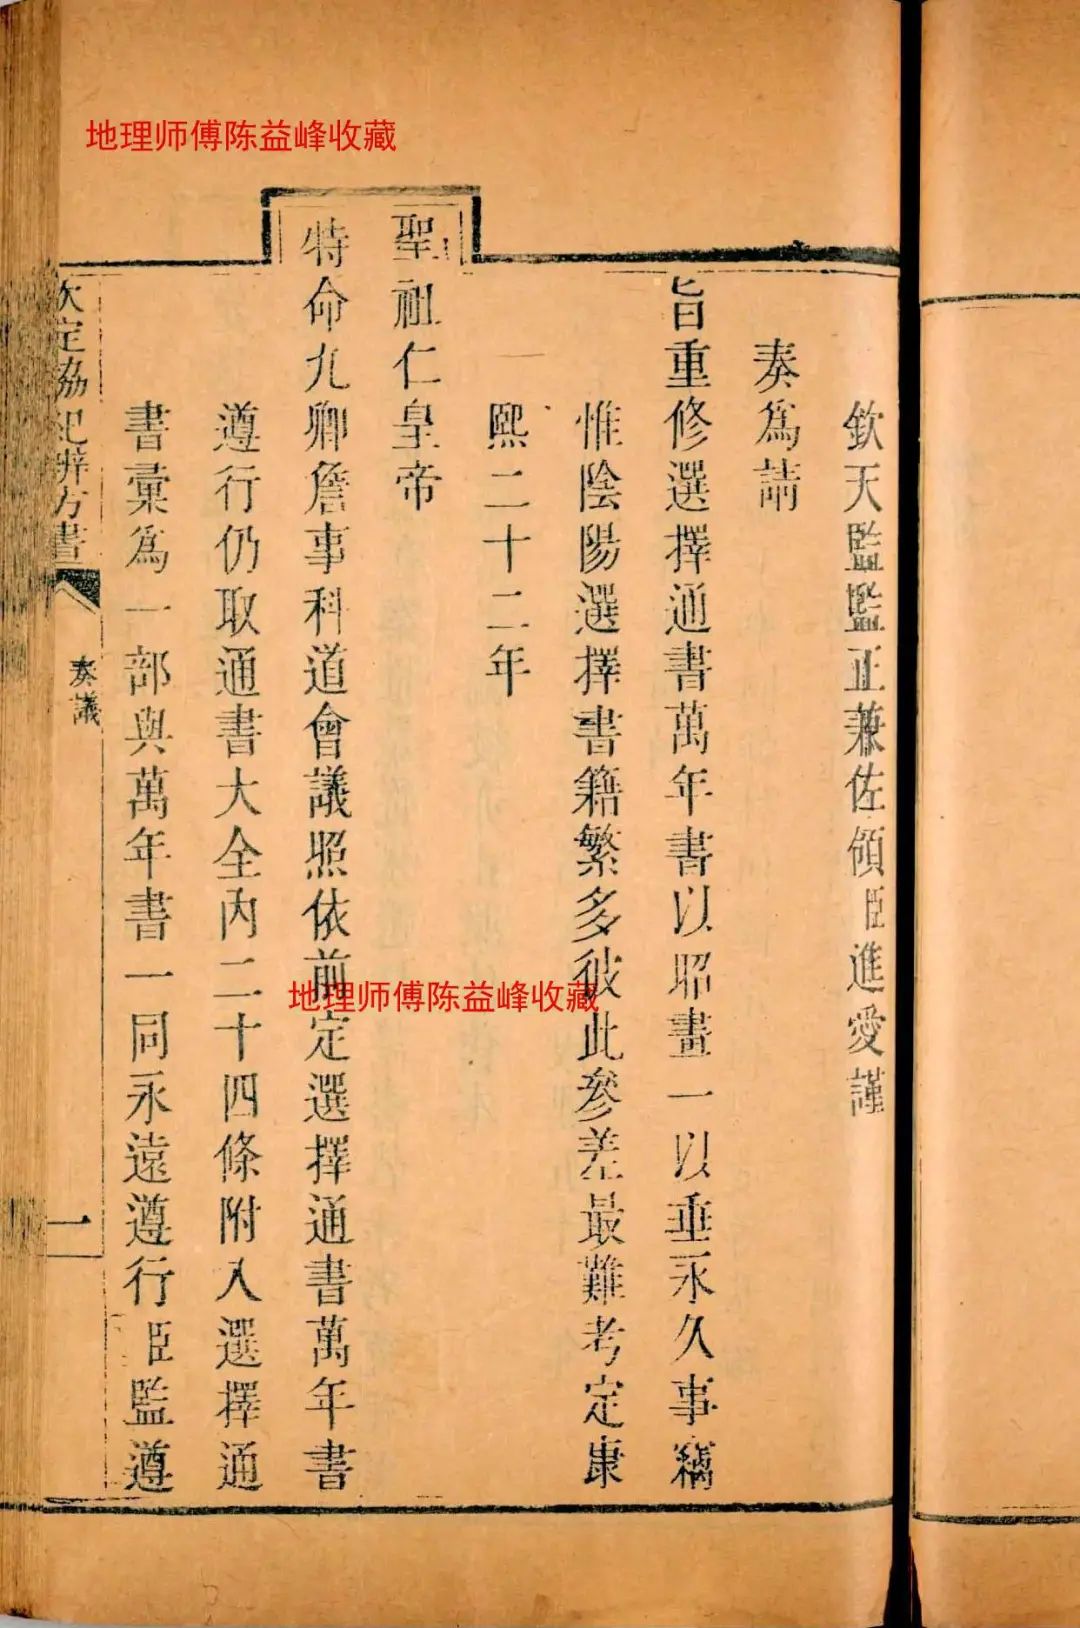 地理师傅陈益峰收藏
欽天監監正兼佐領臣進愛謹
奏爲請
旨重修選擇通書萬年書以昭畫一以垂永久事竊
惟陰陽選擇書籍繁多彼此參差最難考定康
熙二十二年
聖祖仁皇帝
特命九卿詹事科道會議照依前定選擇通書萬年書
遵行仍取通書大全內二十四條附入選擇通
書彙爲一部與萬年書一同永遠遵行臣監遵
欽定協紀辨方書
奏議
一
地理师傅陈益峰收藏